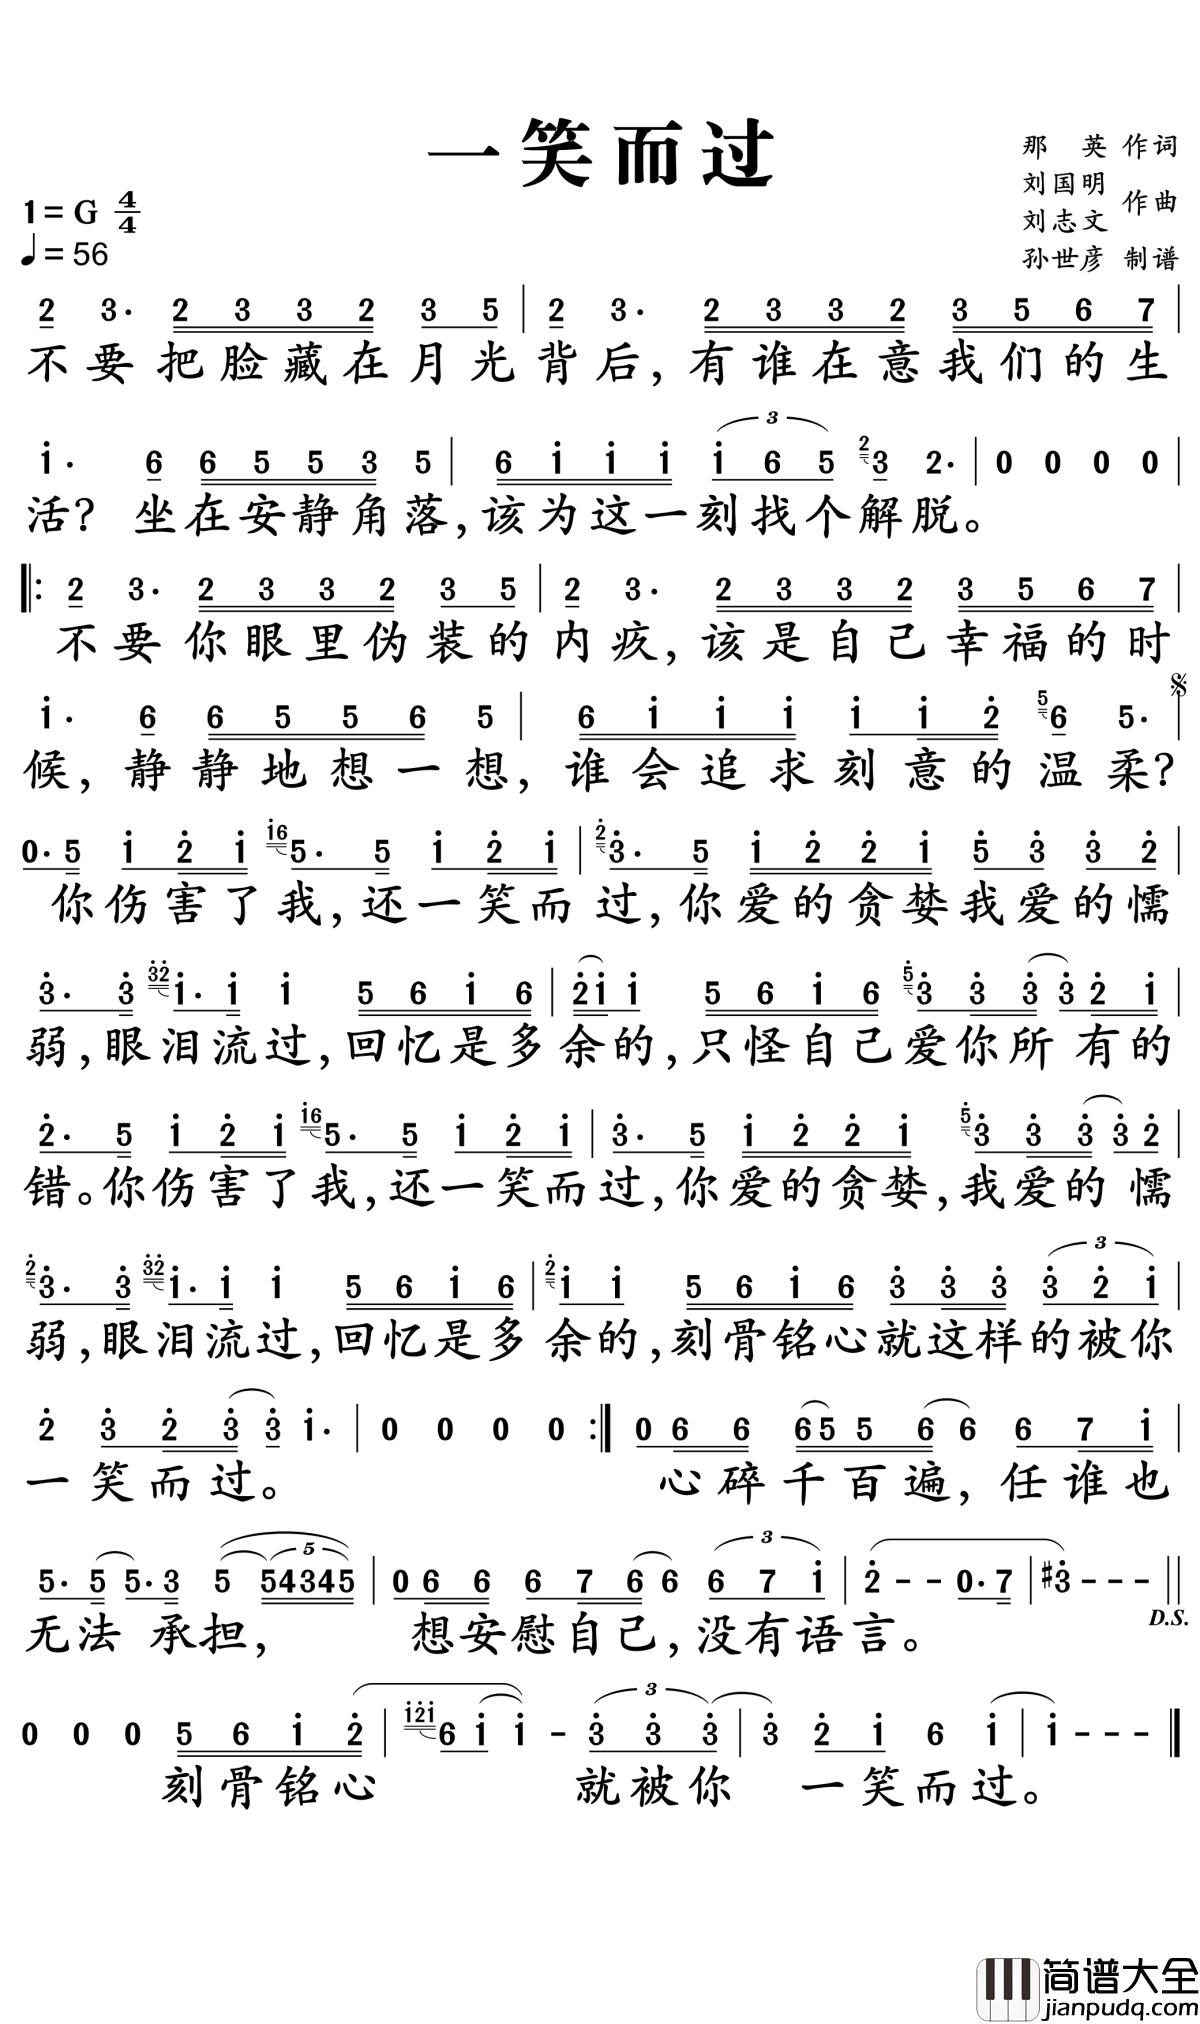 一笑而过
那 英 作词
刘国明
刘志文 作曲
孙世彦 制谱
1=G 4/4
♩=56
2 3· 2 3 3 2 3 5 | 2 3· 2 3 3 2 3 5 6 7 |
不要把脸藏在月光背后，有谁在意我们的生
i· 6 6 5 5 3 5 | 6 i i i i 6 5 2 3 2· | 0 0 0 0 |
3
活？坐在安静角落，该为这一刻找个解脱。
‖: 2 3· 2 3 3 2 3 5 | 2 3· 2 3 3 2 3 5 6 7 |
不要你眼里伪装的内疚，该是自己幸福的时
i· 6 6 5 5 6 5 | 6 i i i i i 2 5 6 5· |
候，静静地想一想，谁会追求刻意的温柔？
0· 5 i 2 i i6 5· 5 i 2 i | 2 3· 5 i 2 2 i 5 3 3 2 |
你伤害了我，还一笑而过，你爱的贪婪我爱的懦
3· 3 32 i· i i 5 6 i 6 | 2 i i 5 6 i 6 5 3 3 3 3 2 i |
弱，眼泪流过，回忆是多余的，只怪自己爱你所有的
2· 5 i 2 i i6 5· 5 i 2 i | 3· 5 i 2 2 i 5 3 3 3 3 2 |
错。你伤害了我，还一笑而过，你爱的贪婪，我爱的懦
2 3· 3 32 i· i i 5 6 i 6 | 2 i i 5 6 i 6 3 3 3 3 2 i |
3
弱，眼泪流过，回忆是多余的，刻骨铭心就这样的被你
2 3 2 3 3 i· | 0 0 0 0 :‖ 0 6 6 6 5 5 6 6 6 7 i |
一笑而过。 心碎千百遍，任谁也
5· 5 5· 3 5 5 4 3 4 5 | 0 6 6 6 7 6 6 6 7 i | 2 - - 0· 7 | #3 - - - ‖
5 3
D.S.
无法承担， 想安慰自己，没有语言。
0 0 0 5 6 i 2 | i2i 6 i i - 3 3 3 | 3 2 i 6 i | i - - - ‖
3
刻骨铭心 就被你 一笑而过。
简谱大全
jianpudq.com